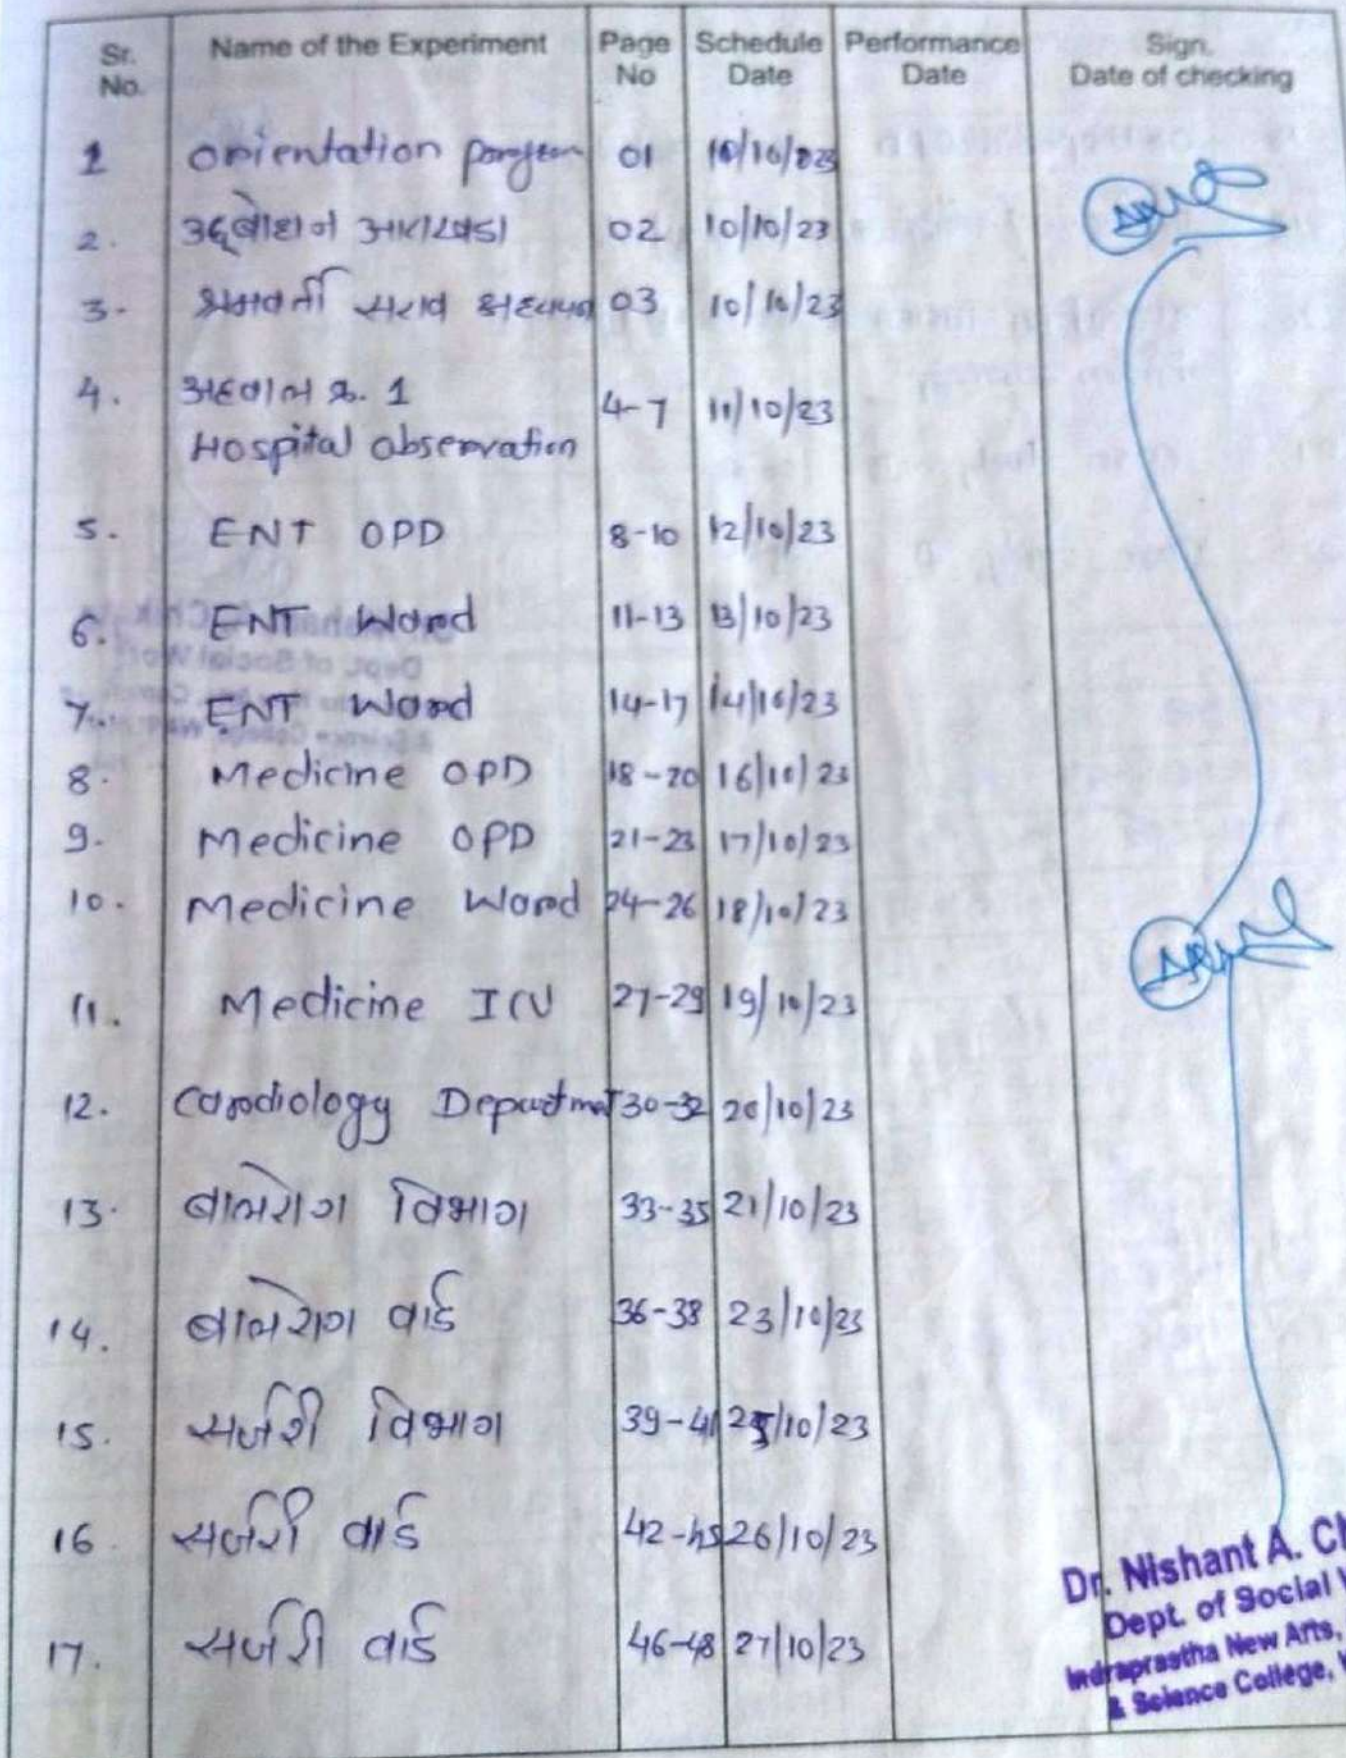 Sr. No. Name of the Experiment Page No Schedule Date Performance Date Sign. Date of checking
1 orientation 01 10/10/23
2. उद्बोधन आराखडा 02 10/10/23
3. 03 10/10/23
4. अहवाल क्र. 1 4-7 11/10/23
Hospital observation
5. ENT OPD 8-10 12/10/23
6. ENT Ward 11-13 13/10/23
7. ENT Ward 14-17 14/10/23
8. Medicine OPD 18-20 16/10/23
9. Medicine OPD 21-23 17/10/23
10. Medicine Ward 24-26 18/10/23
11. Medicine ICU 27-29 19/10/23
12. Cardiology Department 30-32 20/10/23
13. बालरोग विभाग 33-35 21/10/23
14. बालरोग वार्ड 36-38 23/10/23
15. सर्जरी विभाग 39-41 25/10/23
16. सर्जरी वार्ड 42-45 26/10/23
17. सर्जरी वार्ड 46-48 27/10/23
Dr. Nishant A.
Dept. of Social
Indraprastha New Arts,
& Science College,